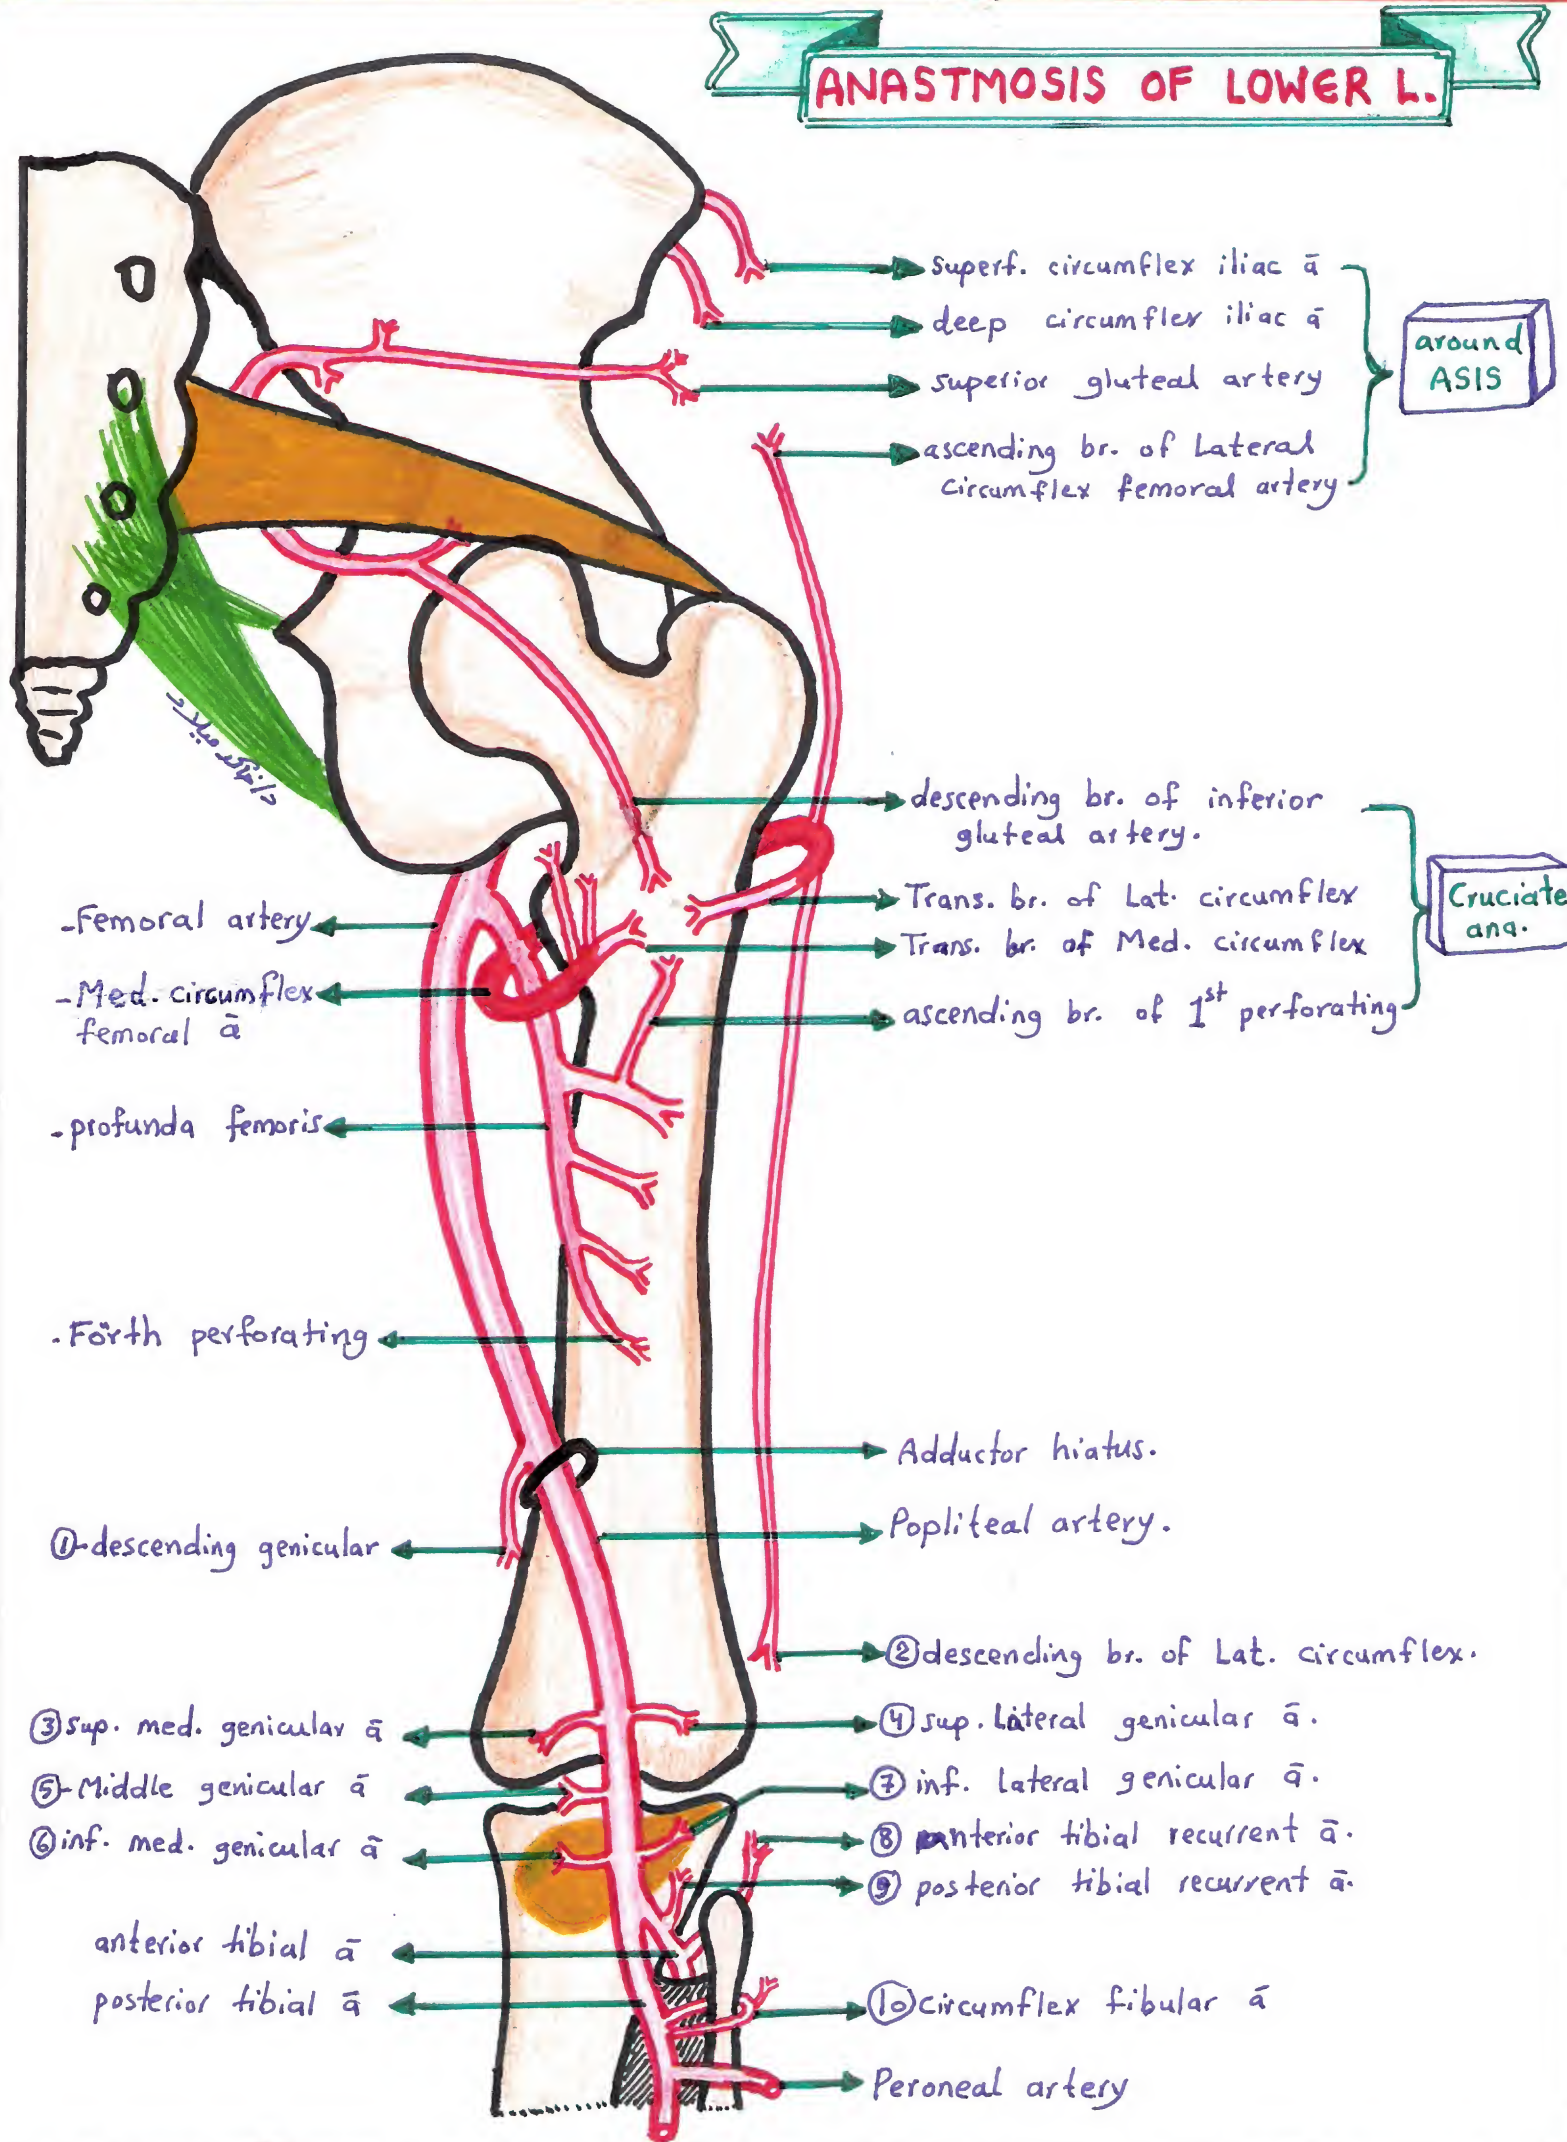 ANASTMOSIS OF LOWER L.
superf. circumflex iliac ā
deep circumflex iliac ā
superior gluteal artery
ascending br. of Lateral
circumflex femoral artery
around
ASIS
descending br. of inferior
gluteal artery.
Trans. br. of Lat. circumflex
Trans. br. of Med. circumflex
ascending br. of 1st perforating
Cruciate
ana.
-Femoral artery
-Med. circumflex
femoral ā
-profunda femoris
-Forth perforating
Adductor hiatus.
Popliteal artery.
①-descending genicular
②descending br. of Lat. circumflex.
③sup. med. genicular ā
④sup. Lateral genicular ā.
⑤-Middle genicular ā
⑦ inf. lateral genicular ā.
⑥inf. med. genicular ā
⑧ anterior tibial recurrent ā.
⑨ posterior tibial recurrent ā.
anterior tibial ā
posterior tibial ā
⑩circumflex fibular ā
Peroneal artery